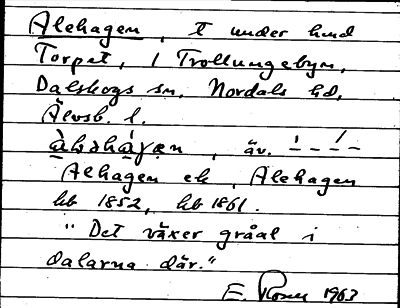 Alehagen, t under hmd
Torpet, i Trollungebyn,
Dalskogs sn, Nordals hd,
Älvsb. l.
, äv.
Alehagen ek, Alehagen
hb 1852, hb 1861.
"Det växer gråal i
dalarna där."
E. Rosen 1963